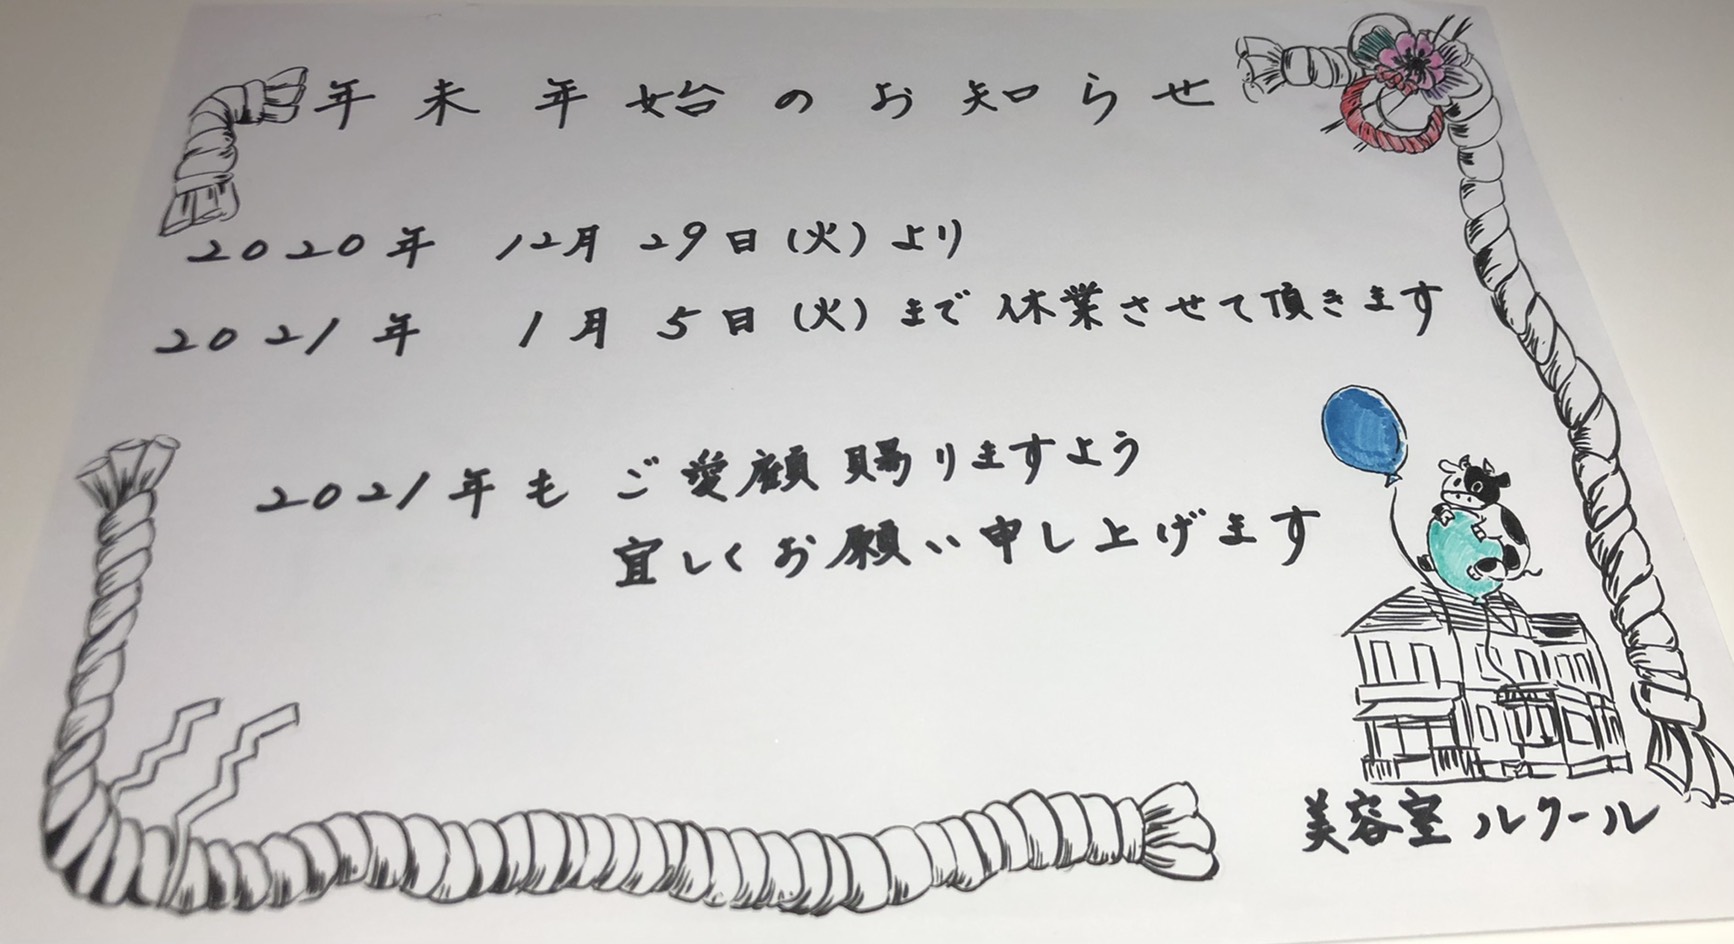 年末年始のお知らせ
2020年 12月29日(火)より
2021年 1月5日(火)まで休業させて頂きます
2021年もご愛顧賜りますよう
宜しくお願い申し上げます
美容室ルクール